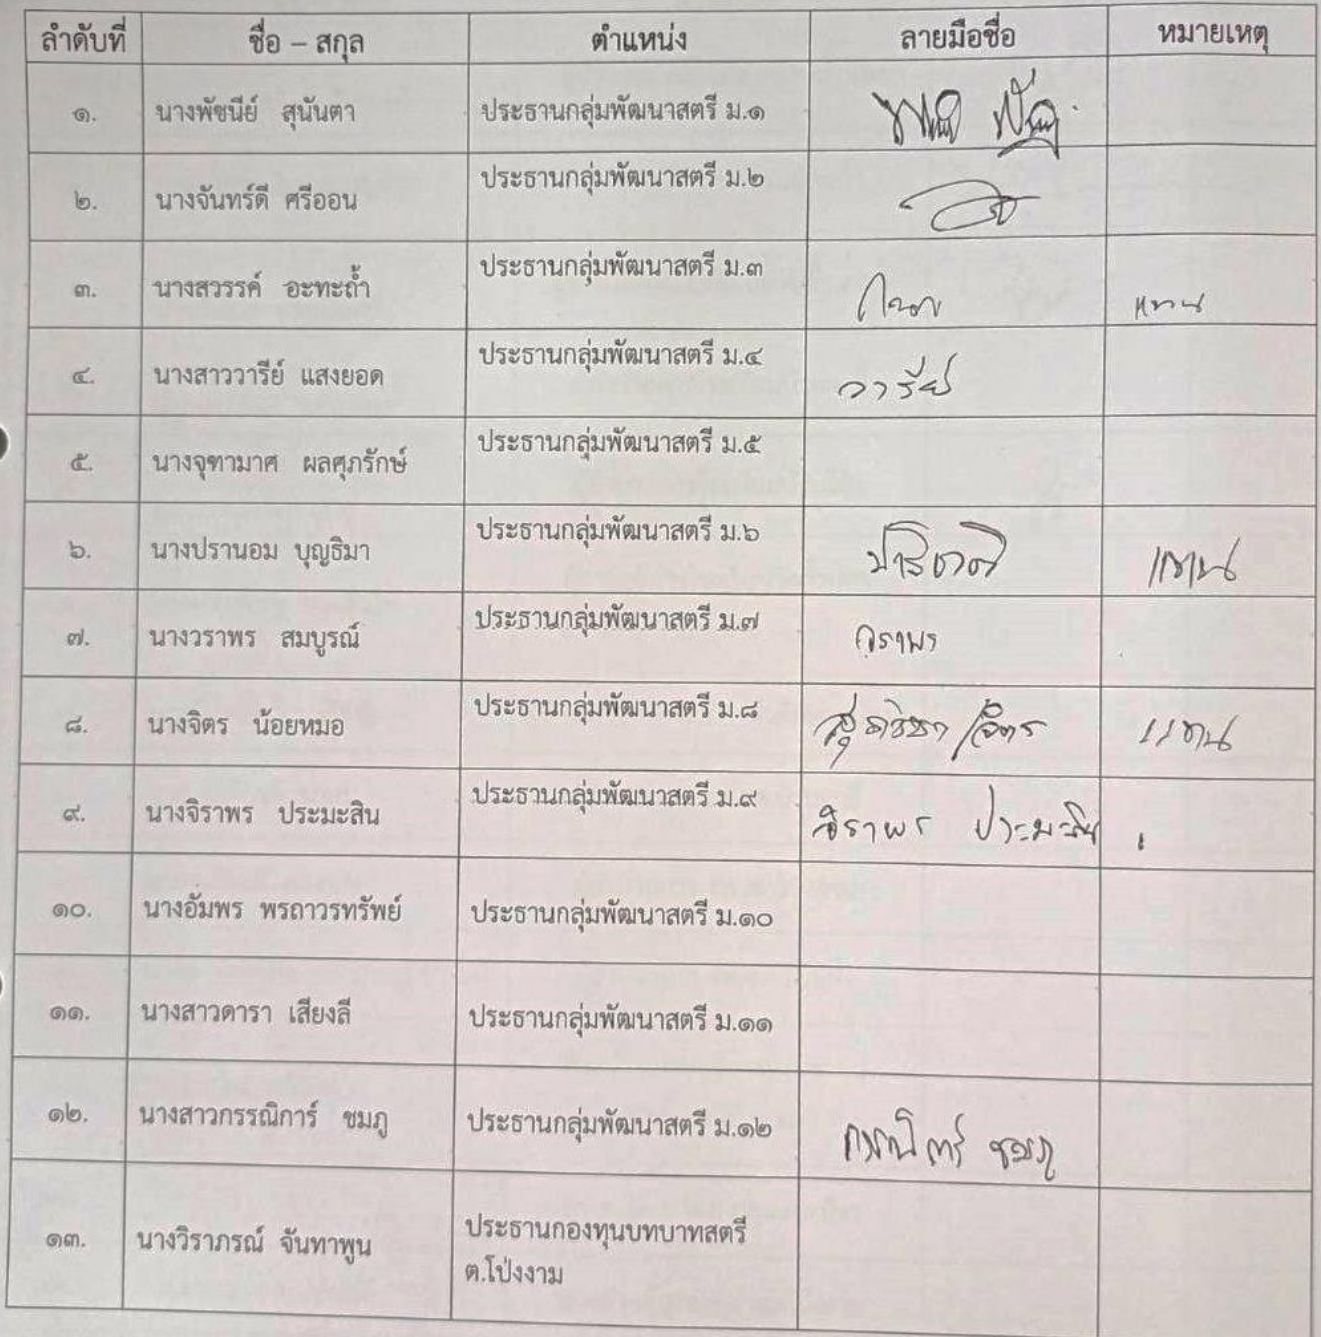 ลำดับที่ ชื่อ – สกุล ตำแหน่ง ลายมือชื่อ หมายเหตุ
๑. นางพัชนีย์ สุนันตา ประธานกลุ่มพัฒนาสตรี ม.๑
๒. นางจันทร์ดี ศรีออน ประธานกลุ่มพัฒนาสตรี ม.๒
๓. นางสวรรค์ อะทะถ้ำ ประธานกลุ่มพัฒนาสตรี ม.๓ แทน
๔. นางสาววารีย์ แสงยอด ประธานกลุ่มพัฒนาสตรี ม.๔ วารีย์
๕. นางจุฑามาศ ผลศุภรักษ์ ประธานกลุ่มพัฒนาสตรี ม.๕
๖. นางปรานอม บุญธิมา ประธานกลุ่มพัฒนาสตรี ม.๖ ปาริชาติ แทน
๗. นางวราพร สมบูรณ์ ประธานกลุ่มพัฒนาสตรี ม.๗ วราพร
๘. นางจิตร น้อยหมอ ประธานกลุ่มพัฒนาสตรี ม.๘ /จิตร แทน
๙. นางจิราพร ประมะสิน ประธานกลุ่มพัฒนาสตรี ม.๙ จิราพร ประมะสิน
๑๐. นางอัมพร พรถาวรทรัพย์ ประธานกลุ่มพัฒนาสตรี ม.๑๐
๑๑. นางสาวดารา เสียงลี ประธานกลุ่มพัฒนาสตรี ม.๑๑
๑๒. นางสาวกรรณิการ์ ชมภู ประธานกลุ่มพัฒนาสตรี ม.๑๒ กรรณิการ์ ชมภู
๑๓. นางวิราภรณ์ จันทาพูน ประธานกองทุนบทบาทสตรี
ต.โป่งงาม